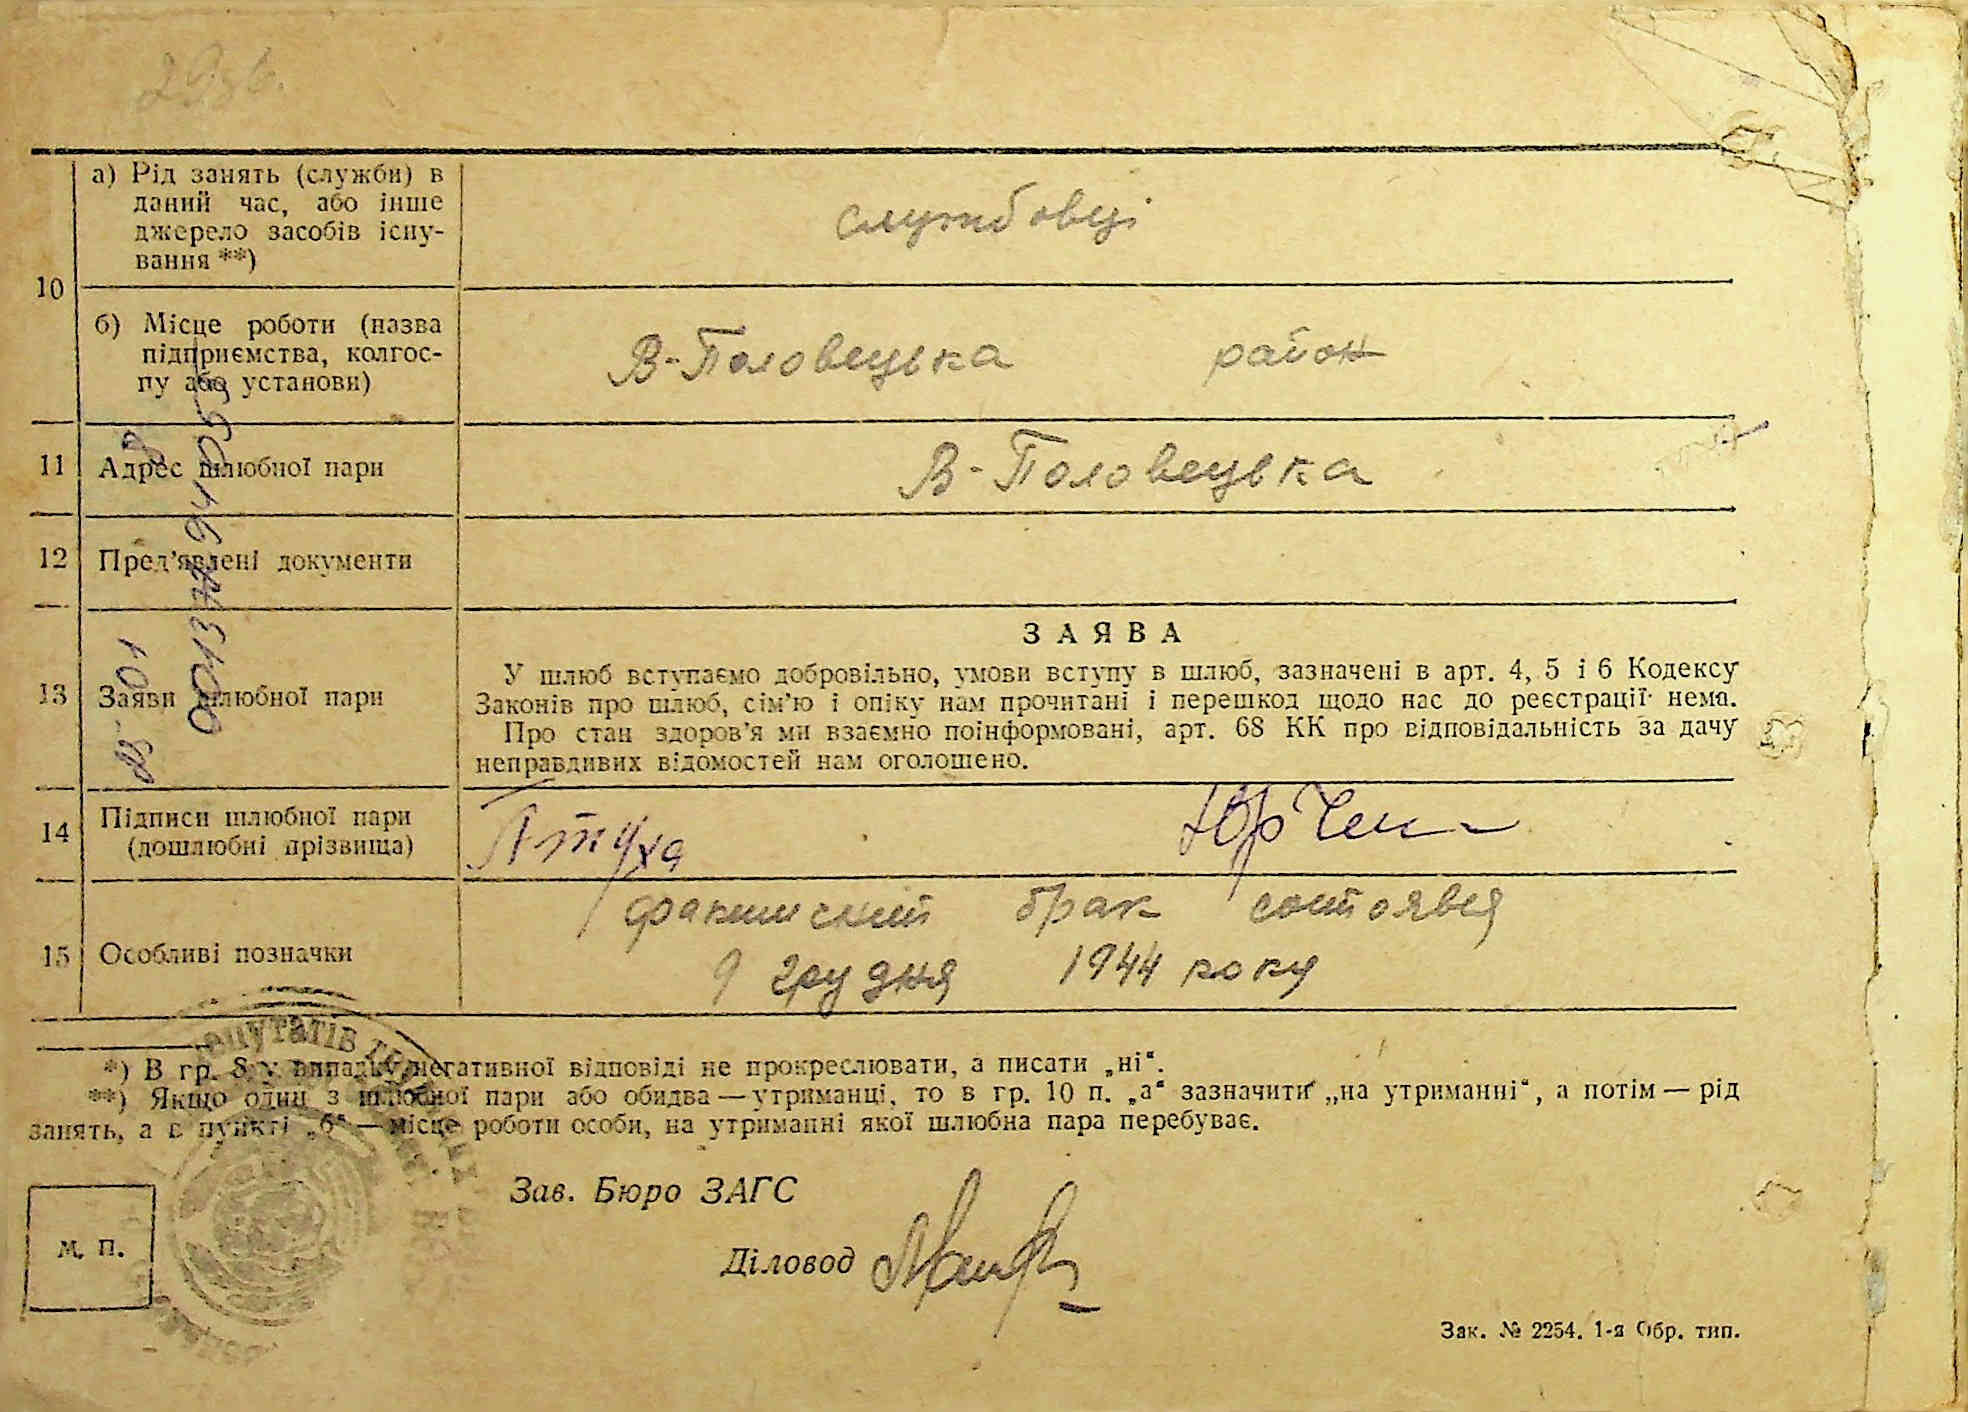 10
а) Рід занять (служби) в
даний час, або інше
джерело засобів існу-
вання **)
службовці
б) Місце роботи (назва
підприємства, колгос-
пу або установи)
В-Половецька район
11 Адрес шлюбної пари
В-Половецька
12 Пред’явлені документи
13 Заяви шлюбної пари
ЗАЯВА
У шлюб вступаємо добровільно, умови вступу в шлюб, зазначені в арт. 4, 5 і 6 Кодексу
Законів про шлюб, сім’ю і опіку нам прочитані і перешкод щодо нас до реєстрації нема.
Про стан здоров’я ми взаємно поінформовані, арт. 68 КК про відповідальність за дачу
неправдивих відомостей нам оголошено.
14 Підписи шлюбної пари
(дошлюбні прізвища)
15 Особливі позначки
брак состоявся
9 грудня 1944 року
*) В гр. 8 у випадку негативної відповіді не прокреслювати, а писати „ні“.
**) Якщо один з шлюбної пари або обидва — утриманці, то в гр. 10 п. „а“ зазначити „на утриманні“, а потім — рід
занять, а в пункті „б“ — місце роботи особи, на утриманні якої шлюбна пара перебуває.
Зав. Бюро ЗАГС
Діловод
м. п.
Зак. № 2254. 1-я Обр. тип.